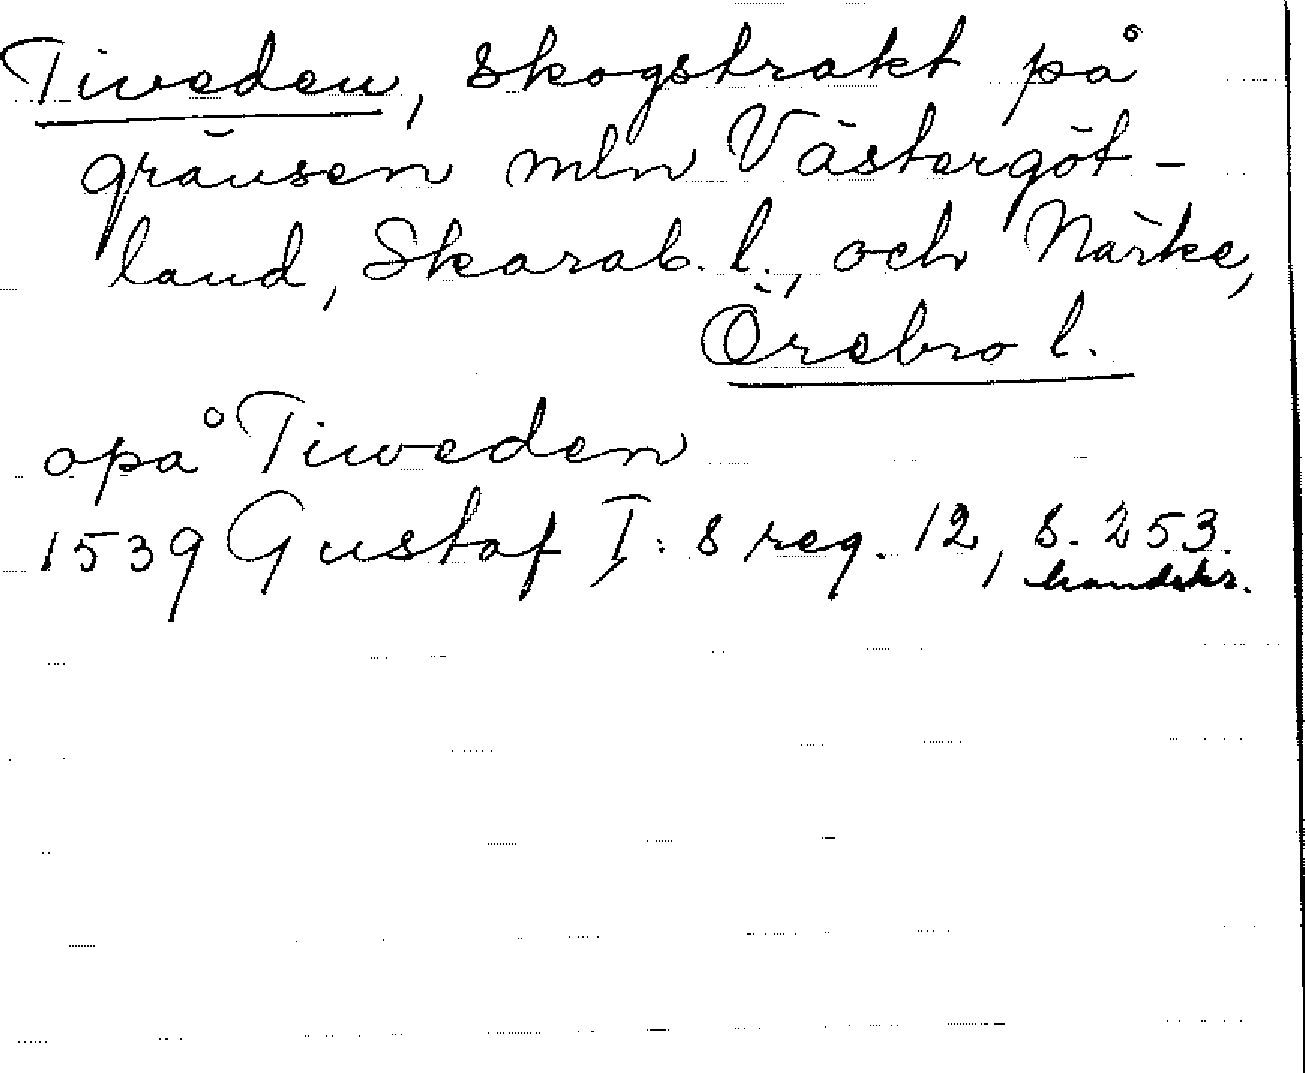 Tiweden, skogstrakt på
gränsen mln Västergöt-
land, Skarab. l., och Närke,
Örebro l.
opå Tiweden
1539 Gustaf I:s reg. 12, s. 253.
handskr.